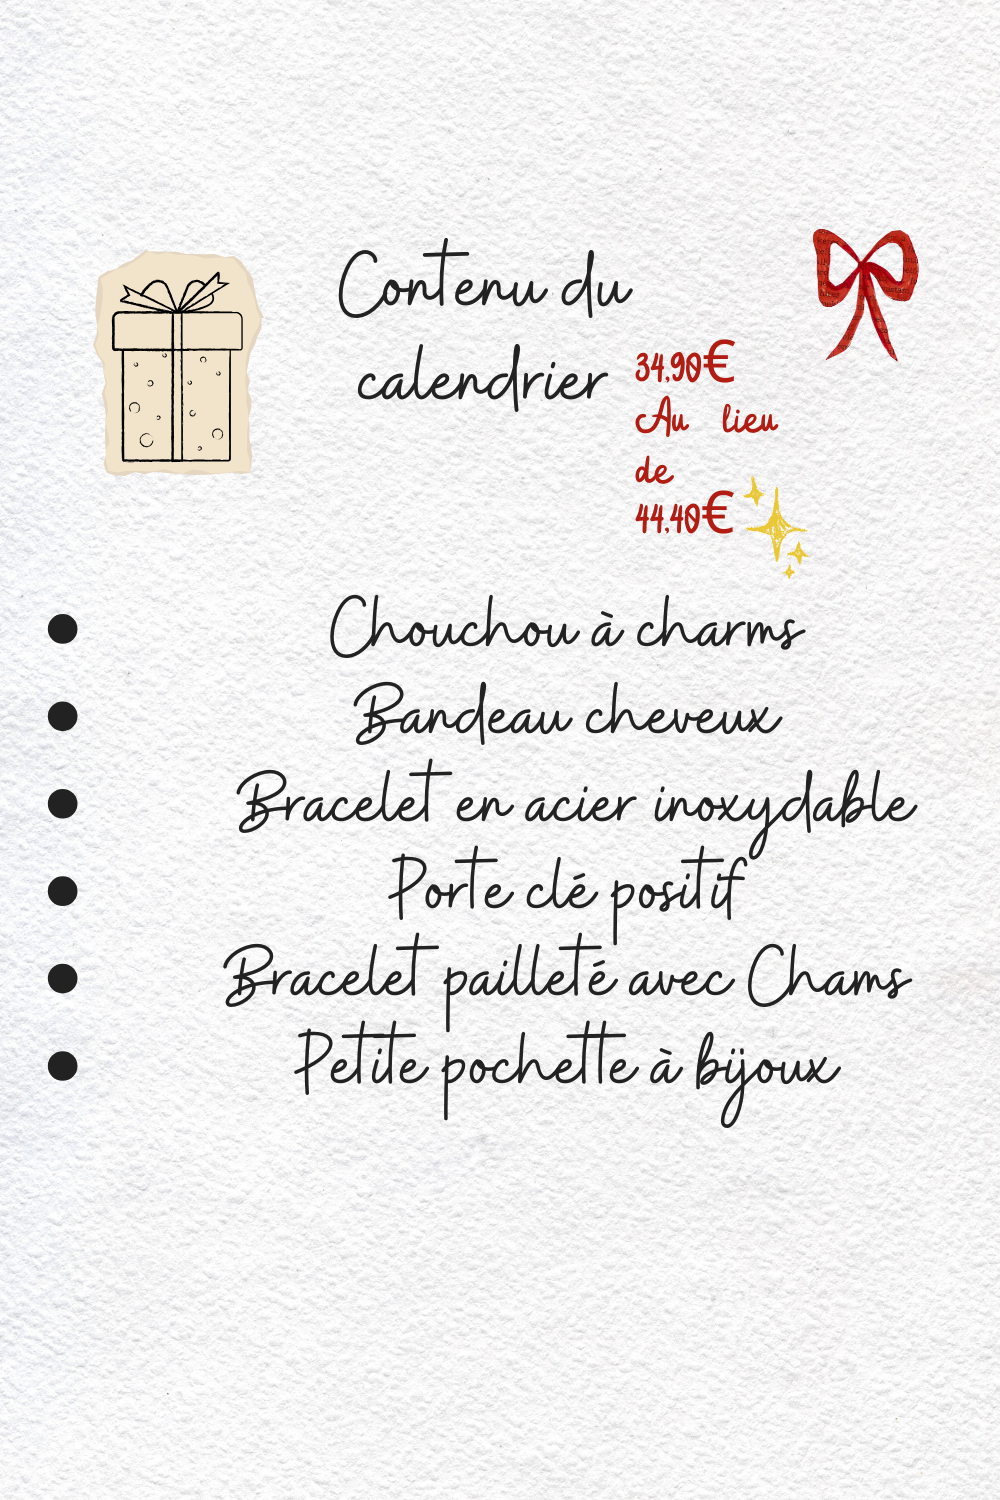 Contenu du
calendrier
34,90€
Au lieu
de
44,40€
Chouchou à charms
Bandeau cheveux
Bracelet en acier inoxydable
Porte clé positif
Bracelet pailleté avec Chams
Petite pochette à bijoux